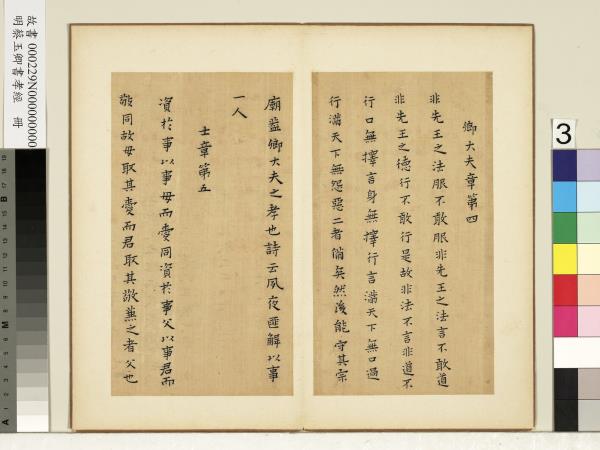 故書 000229N000000000
明蔡玉卿書孝經 冊
卿大夫章第四
非先王之法服不敢服非先王之法言不敢道
非先王之德行不敢行是故非法不言非道不
行口無擇言身無擇行言滿天下無口過
行滿天下無怨惡二者備矣然後能守其宗
廟蓋卿大夫之孝也詩云夙夜匪懈以事
一人
士章第五
資於事以事母而愛同資於事父以事君而
敬同故母取其愛而君取其敬兼之者父也
3
B
M
A